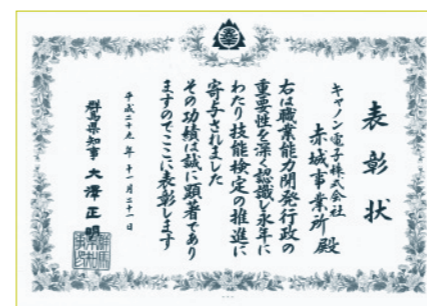 表彰状
キャノン電子株式会社
赤城事業所 殿
右は職業能力開発行政の
重要性を深く認識し永年に
わたり技能検定の推進に
寄与されました
その功績は誠に顕著であり
ますのでここに表彰します
平成二十九年十一月二十一日
群馬県知事 大澤正明